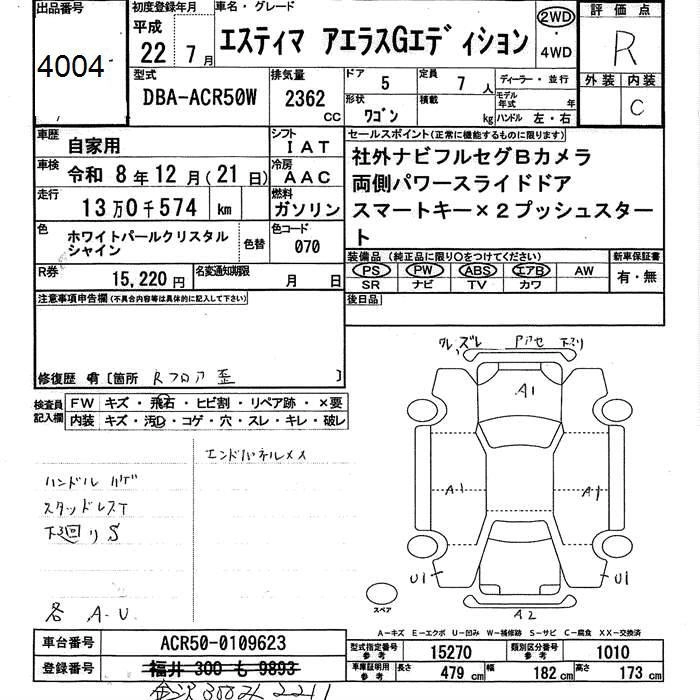 出品番号
4004
初度登録年月
平成
22年 7月
車名・グレード
エスティマ アエラスGエディション
2WD
・
4WD
評価点
R
外装 内装
C
型式
DBA-ACR50W
排気量
2362
CC
ドア 5
定員 7人
形状 ワゴン
積載 kg
ディーラー・並行
モデル年式 年
ハンドル 左・右
車歴
自家用
シフト
IAT
車検
令和 8年12月(21日)
冷房
AAC
走行
13万0千574 km
燃料
ガソリン
色
ホワイトパールクリスタル
シャイン
色替
色コード
070
R券
15,220円
名変通知期限
月 日
セールスポイント(正常に機能するものに限ります)
社外ナビフルセグBカメラ
両側パワースライドドア
スマートキー×2プッシュスター
ト
装備品(純正品に限り○をつけてください)
PS PW ABS エアB AW
SR ナビ TV カワ
新車保証書
有・無
後日品
注意事項申告欄(不具合内容等は具体的に記入して下さい)
修復歴 有[箇所 Rフロア歪 ]
検査員
記入欄
FW キズ・飛石・ヒビ割・リペア跡・×要
内装 キズ・汚レ・コゲ・穴・スレ・キレ・破レ
エンドパネルメメ
ハンドルハゲ
スタッドレスT
下廻りS
各 A-U
グレ、ズレ
下スリ
A1
A1
A1
U1
U1
A2
スペア
A-キズ E-エクボ U-凹み W-補修跡 S-サビ C-腐食 XX-交換済
車台番号
ACR50-0109623
登録番号
福井 300 も 9893
型式指定番号
参考
15270
類別区分番号
参考
1010
車庫証明用
参考
長さ 479 cm
幅 182 cm
高さ 173 cm